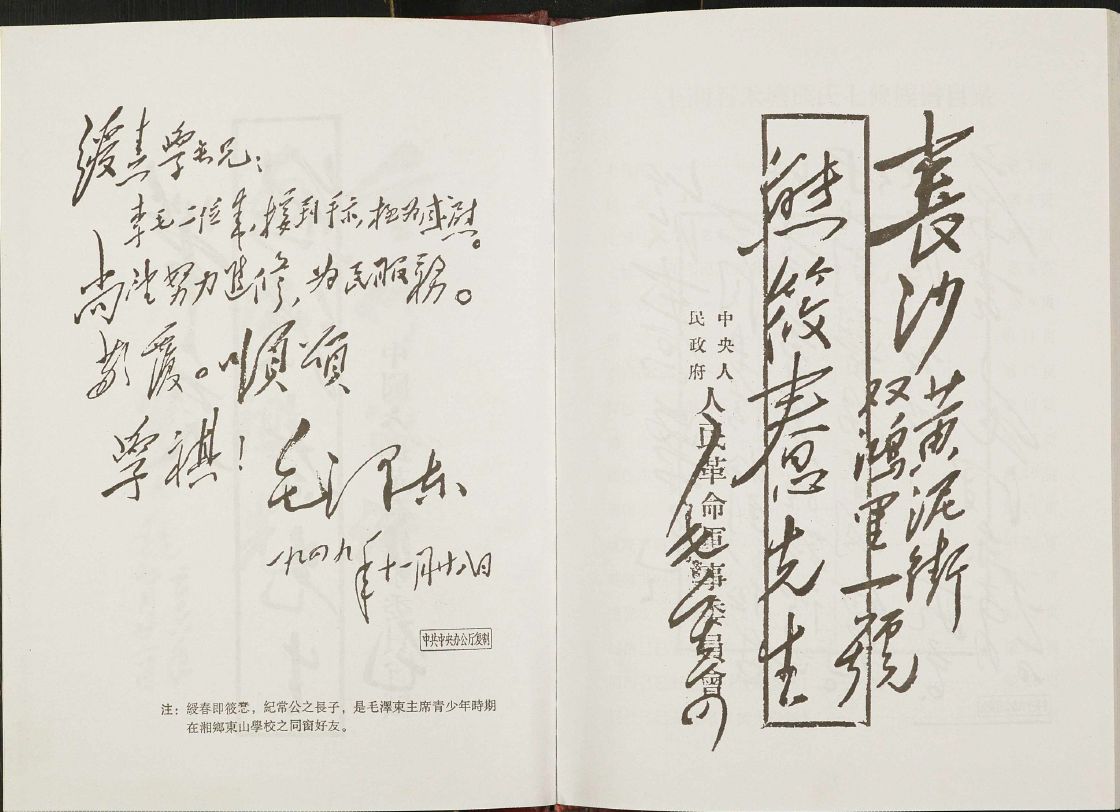 學長兄：
李毛二位来，接到手示，極为感慰。
尚望努力進修，为民服務。
敬覆。順頌
學祺！
毛澤东
一九四九年十一月廿八日
中共中央办公厅复制
注：綬春即筱惷，紀常公之長子，是毛澤東主席青少年時期
在湘鄉東山學校之同窗好友。
長沙黃泥街
双鴻里一號
熊筱惷先生
中央人
民政府
人民革命軍事委員會